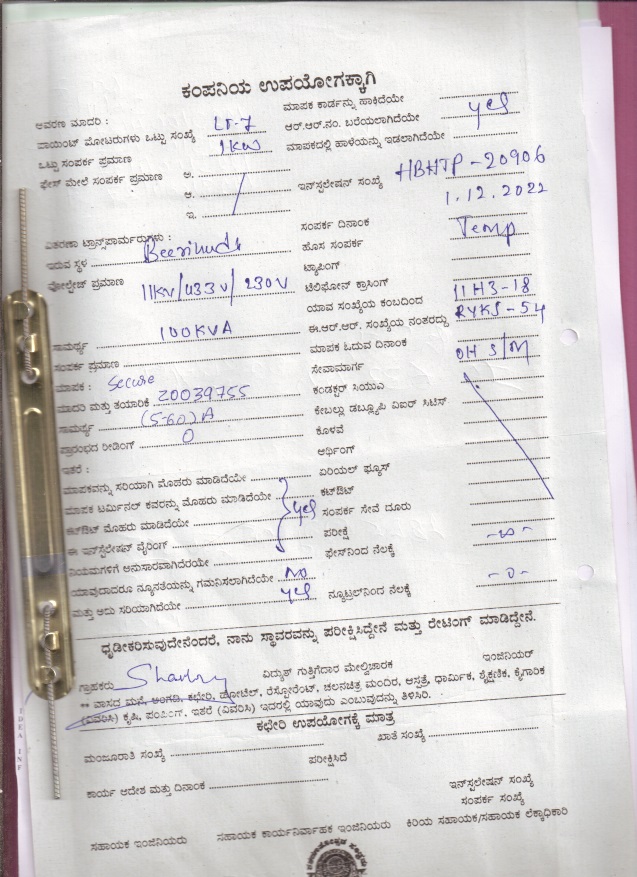 ಕಂಪನಿಯ ಉಪಯೋಗಕ್ಕಾಗಿ
ಮಾಪಕ ಕಾರ್ಡನ್ನು ಹಾಕಿದೆಯೇ
ಆವರಣ ಮಾದರಿ :
ಆರ್.ಆರ್.ನಂ. ಬರೆಯಲಾಗಿದೆಯೇ yes
ಪಾಯಿಂಟ್ ಮೋಟರುಗಳು ಒಟ್ಟು ಸಂಖ್ಯೆ LT-7
ಮಾಪಕದಲ್ಲಿ ಹಾಳೆಯನ್ನು ಇಡಲಾಗಿದೆಯೇ
ಒಟ್ಟು ಸಂಪರ್ಕ ಪ್ರಮಾಣ 1KW
ಫೇಸ್ ಮೇಲೆ ಸಂಪರ್ಕ ಪ್ರಮಾಣ ಅ.
ಆ. ಇನ್‌ಸ್ಟಲೇಷನ್ ಸಂಖ್ಯೆ HBHTP-20906
ಇ. 1.12.2022
ವಿತರಣಾ ಟ್ರಾನ್ಸ್‌ಪಾರ್ಮರುಗಳು : ಸಂಪರ್ಕ ದಿನಾಂಕ
ಇರುವ ಸ್ಥಳ ಹೊಸ ಸಂಪರ್ಕ Temp
ಟ್ಯಾಪಿಂಗ್
ವೋಲ್ಟೇಜ್ ಪ್ರಮಾಣ 11KV/433V/230V ಟೆಲಿಫೋನ್ ಕ್ರಾಸಿಂಗ್
ಯಾವ ಸಂಖ್ಯೆಯ ಕಂಬದಿಂದ 11H3-18
ಸಾಮರ್ಥ್ಯ 100KVA ಈ.ಆರ್.ಆರ್. ಸಂಖ್ಯೆಯ ನಂತರದ್ದು RYKS-54
ಸಂಪರ್ಕ ಪ್ರಮಾಣ ಮಾಪಕ ಓದುವ ದಿನಾಂಕ
ಮಾಪಕ : Secure ಸೇವಾಮಾರ್ಗ OH S/M
ಮಾದರಿ ಮತ್ತು ತಯಾರಿಕೆ 20039755 ಕಂಡಕ್ಟರ್ ಸಿಯುಎ
ಸಾಮರ್ಥ್ಯ (5-60)A ಕೇಬಲ್ಲು ಡಬ್ಲ್ಯೂಪಿ ವಿಐರ್ ಸಿಟಿಸ್
ಪ್ರಾರಂಭದ ರೀಡಿಂಗ್ 0 ಕೊಳವೆ
ಇತರೆ : ಆರ್ಥಿಂಗ್
ಮಾಪಕವನ್ನು ಸರಿಯಾಗಿ ಮೊಹರು ಮಾಡಿದೆಯೇ ಏರಿಯಲ್ ಫ್ಯೂಸ್
ಮಾಪಕ ಟರ್ಮಿನಲ್ ಕವರನ್ನು ಮೊಹರು ಮಾಡಿದೆಯೇ yes ಕಟ್‌ಔಟ್
ಕಟ್‌ಔಟ್ ಮೊಹರು ಮಾಡಿದೆಯೇ ಸಂಪರ್ಕ ಸೇವೆ ದೂರು
ಈ ಇನ್‌ಸ್ಟಲೇಷನ್ ವೈರಿಂಗ್ ಪರೀಕ್ಷೆ
ನಿಯಮಗಳಿಗೆ ಅನುಸಾರವಾಗಿದೆರಯೇ ಫೇಸ್‌ನಿಂದ ನೆಲಕ್ಕೆ -∞-
ಯಾವುದಾದರೂ ನ್ಯೂನತೆಯನ್ನು ಗಮನಿಸಲಾಗಿದೆಯೇ No
ಮತ್ತು ಅದು ಸರಿಯಾಗಿದೆಯೇ yes ನ್ಯೂಟ್ರಲ್‌ನಿಂದ ನೆಲಕ್ಕೆ -0-
ಧೃಡೀಕರಿಸುವುದೇನೆಂದರೆ, ನಾನು ಸ್ಥಾವರವನ್ನು ಪರೀಕ್ಷಿಸಿದ್ದೇನೆ ಮತ್ತು ರೇಟಿಂಗ್ ಮಾಡಿದ್ದೇನೆ.
ಗ್ರಾಹಕರು ವಿದ್ಯುತ್ ಗುತ್ತಿಗೆದಾರ ಮೇಲ್ವಿಚಾರಕ ಇಂಜಿನಿಯರ್
** ವಾಸದ ಮನೆ, ಅಂಗಡಿ, ಕಛೇರಿ, ಹೋಟೆಲ್, ರೆಸ್ಟೋರೆಂಟ್, ಚಲನಚಿತ್ರ ಮಂದಿರ, ಆಸ್ಪತ್ರೆ, ಧಾರ್ಮಿಕ, ಶೈಕ್ಷಣಿಕ, ಕೈಗಾರಿಕ
(ವಿವರಿಸಿ) ಕೃಷಿ, ಪಂಪಿಂಗ್, ಇತರೆ (ವಿವರಿಸಿ) ಇದರಲ್ಲಿ ಯಾವುದು ಎಂಬುವುದನ್ನು ತಿಳಿಸಿರಿ.
ಕಛೇರಿ ಉಪಯೋಗಕ್ಕೆ ಮಾತ್ರ
ಮಂಜೂರಾತಿ ಸಂಖ್ಯೆ ಖಾತೆ ಸಂಖ್ಯೆ
ಪರೀಕ್ಷಿಸಿದೆ
ಕಾರ್ಯ ಆದೇಶ ಮತ್ತು ದಿನಾಂಕ ಇನ್‌ಸ್ಟಲೇಷನ್ ಸಂಖ್ಯೆ
ಸಂಪರ್ಕ ಸಂಖ್ಯೆ
ಸಹಾಯಕ ಇಂಜಿನಿಯರು ಸಹಾಯಕ ಕಾರ್ಯನಿರ್ವಾಹಕ ಇಂಜಿನಿಯರು ಕಿರಿಯ ಸಹಾಯಕ/ಸಹಾಯಕ ಲೆಕ್ಕಾಧಿಕಾರಿ
IDEA INF